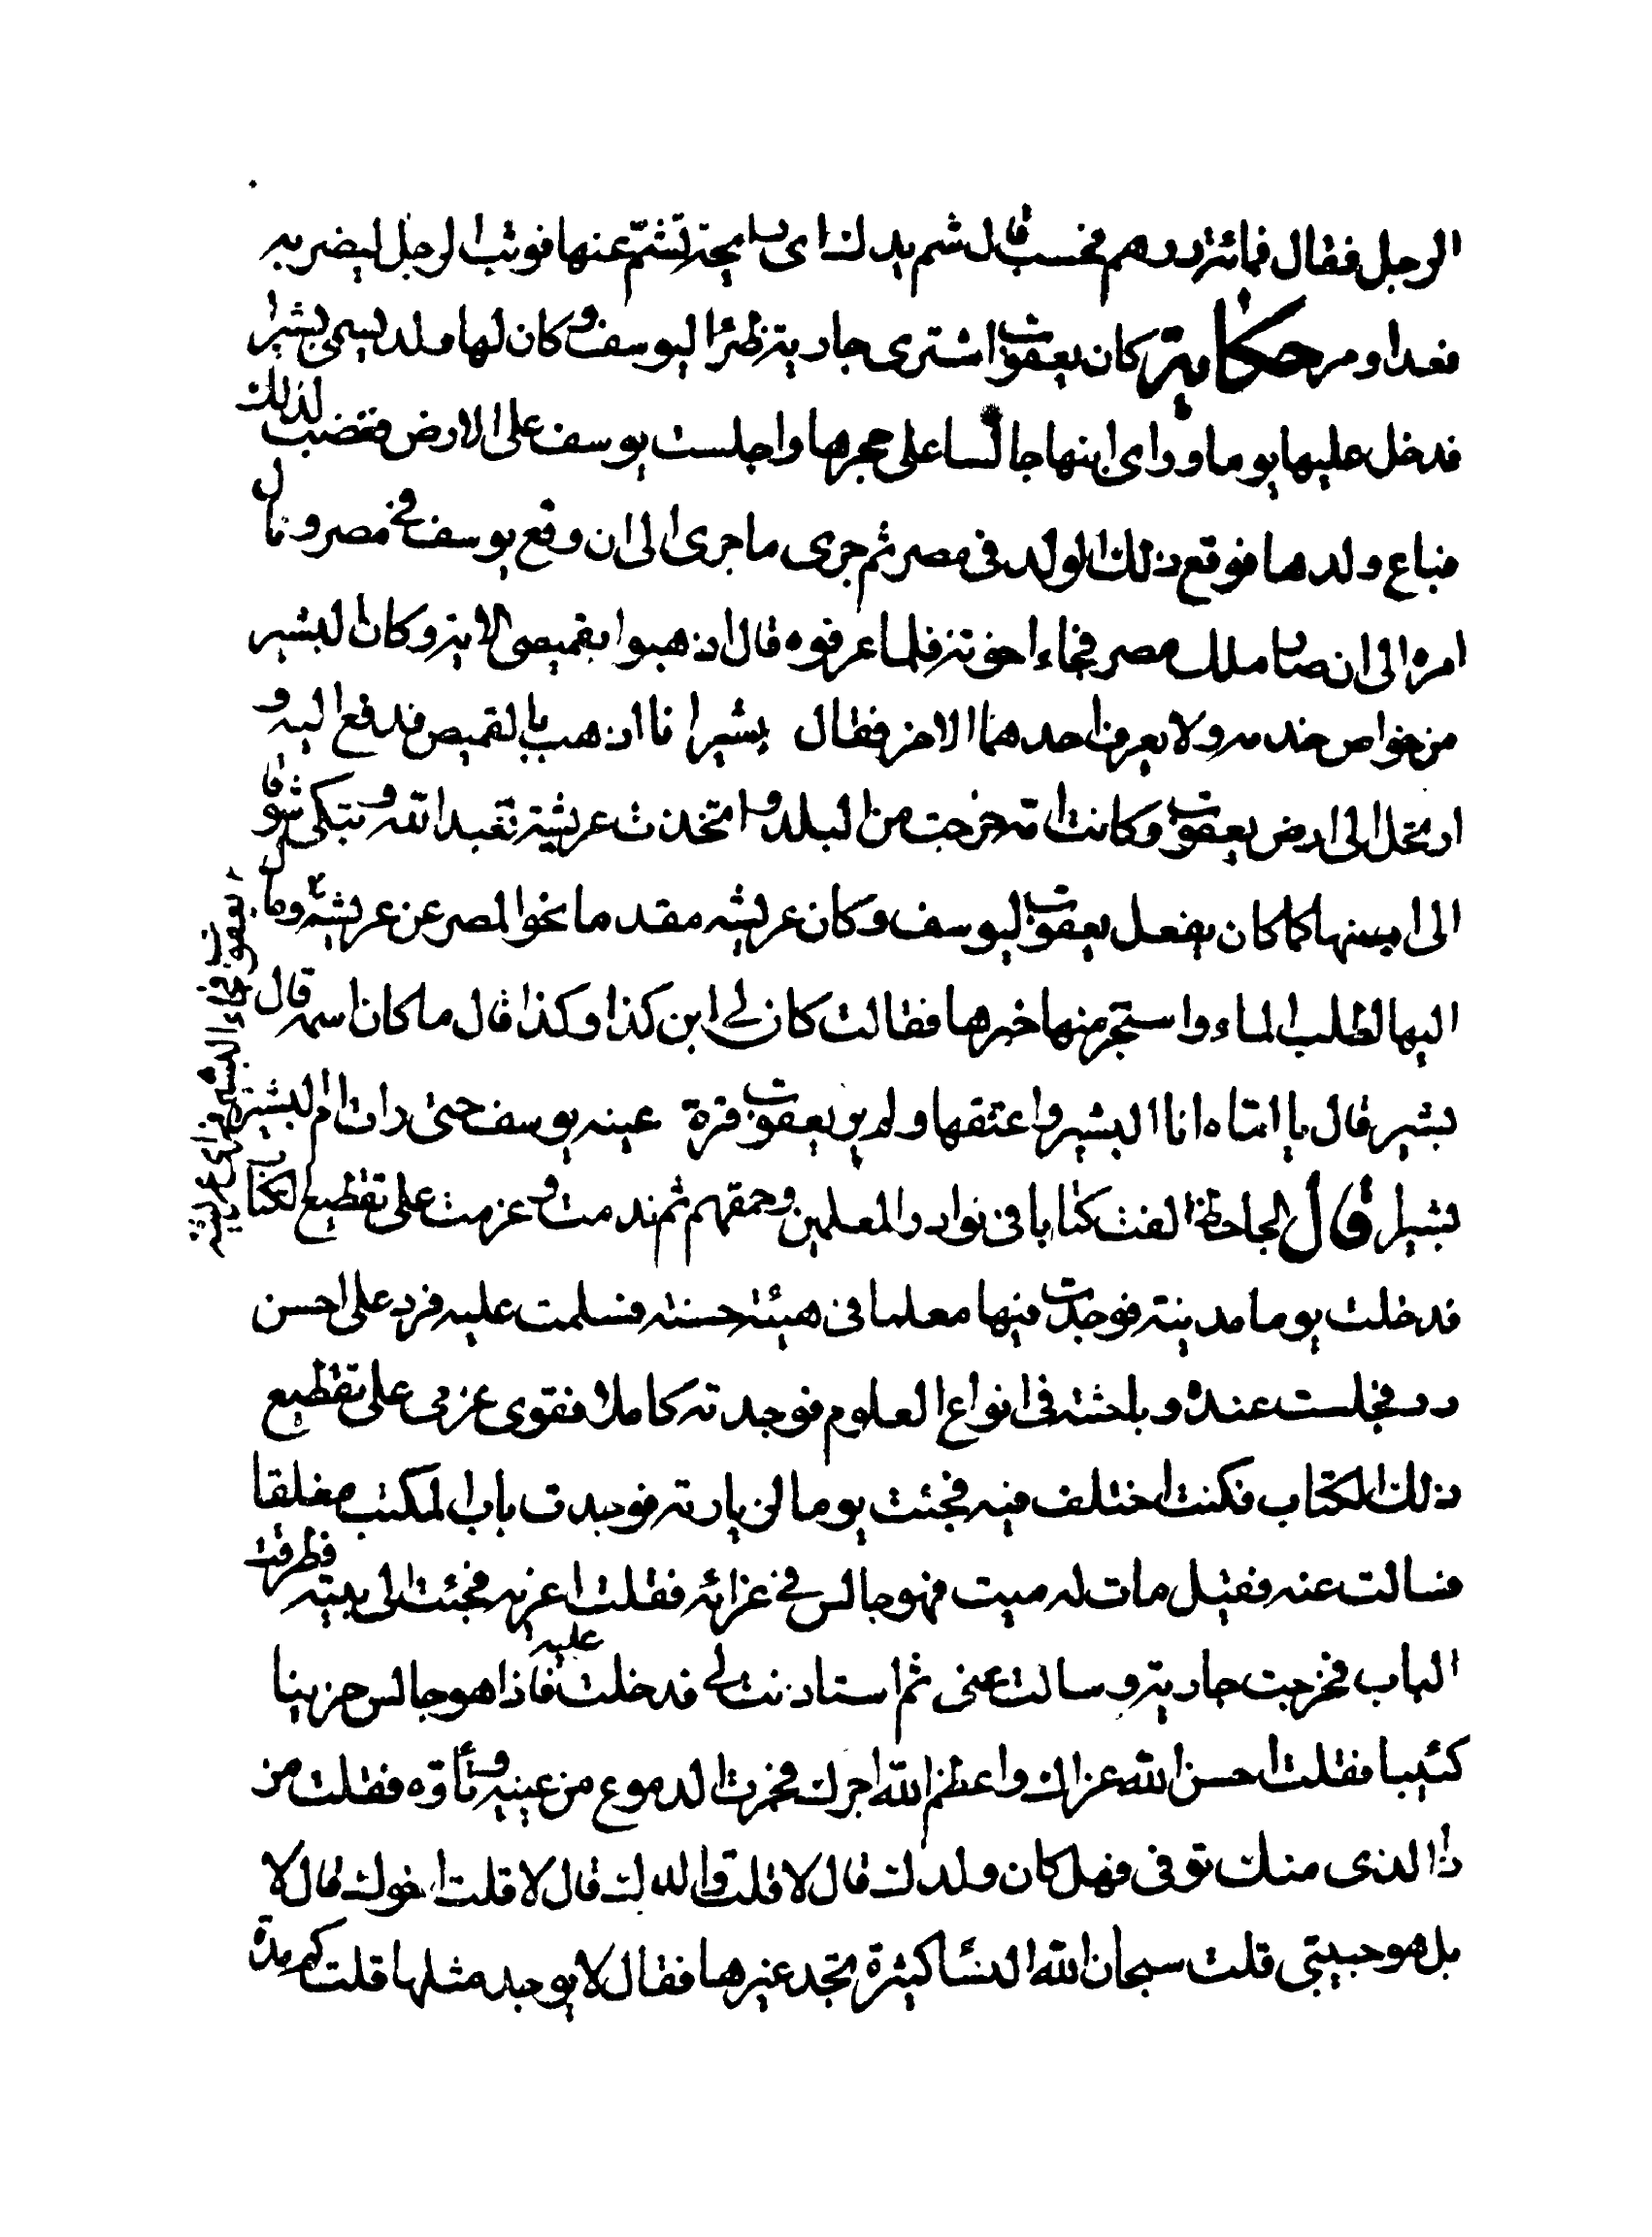 الرجل فقال فمائة درهم فخسب قال شم يدك اى رايحة تشم عنها فوثب الرجل ليضربه
فعدا ومر حكاية كان يعقوب اشترى جارية ظئرا ليوسف و كان لها ولد يسمى بشيرا
فدخل عليها يوما وراى ابنها جالسا على حجرها واجلست يوسف على الارض فغضب لذلك
فباع ولدها فوقع ذلك الولد فى مصر ثم جرى ما جرى الى ان وقع يوسف فى مصر و نال
امره الى ان صار ملك مصر فجاء اخوته فلما عرفوه قال اذهبوا بقميصى الاية وكان البشير
من خواص خدمه ولا يعرف احدهما الاخر فقال بشير انا اذهب بالقميص فدفع اليه و
ارتحل الى ارض يعقوب وكانت امه خرجت من البلد و اتخذت عريشة تعبد الله و تبكى شوقا
الى ابنها كما كان يفعل يعقوب ليوسف وكان عريشه مقدما نحو المصر عن عريشة يعقوب فجاء البشير فراى عريشة ومال
اليها لطلب الماء واستخبر منها خبرها فقالت كان لى ابن كذا وكذا قال ما كان اسمه قال
بشير قال يا امتاه انا البشير واعتقها ولم ير يعقوب قرة عينه يوسف حتى رات ام البشير
بشيرا قال الجاحظ الفت كتابا فى نوادر المعلمين و حمقهم ثم ندمت و عزمت على تقطيع الكتاب
فدخلت يوما مدينة فوجدت فيها معلما فى هيئة حسنه فسلمت عليه فرد على احسن
رد فجلست عنده و باحثته فى انواع العلوم فوجدته كاملا فقوى عزمى على تقطيع
ذلك الكتاب فكنت اختلف فيه فجئت يوما لزيارته فوجدت باب المكتب مغلقا
فسالت عنه فقيل مات له ميت فهو جالس فى عزائه فقلت اعزيه فجئت الى بيته فطرقت
الباب فخرجت جارية و سالت عنى ثم استاذنت لى فدخلت عليه فاذا هو جالس حزينا
كئيبا فقلت احسن الله عزاك واعظم الله اجرك فخرت الدموع من عينيه و تأوه فقلت من
ذا الذى منك توفى فهل كان ولدك قال لا قلت والدك قال لا قلت اخوك قال لا
بل هو حبيبتى قلت سبحان الله النسا كثيرة تجد غيرها فقال لا يوجد مثلها قلت كم مدة